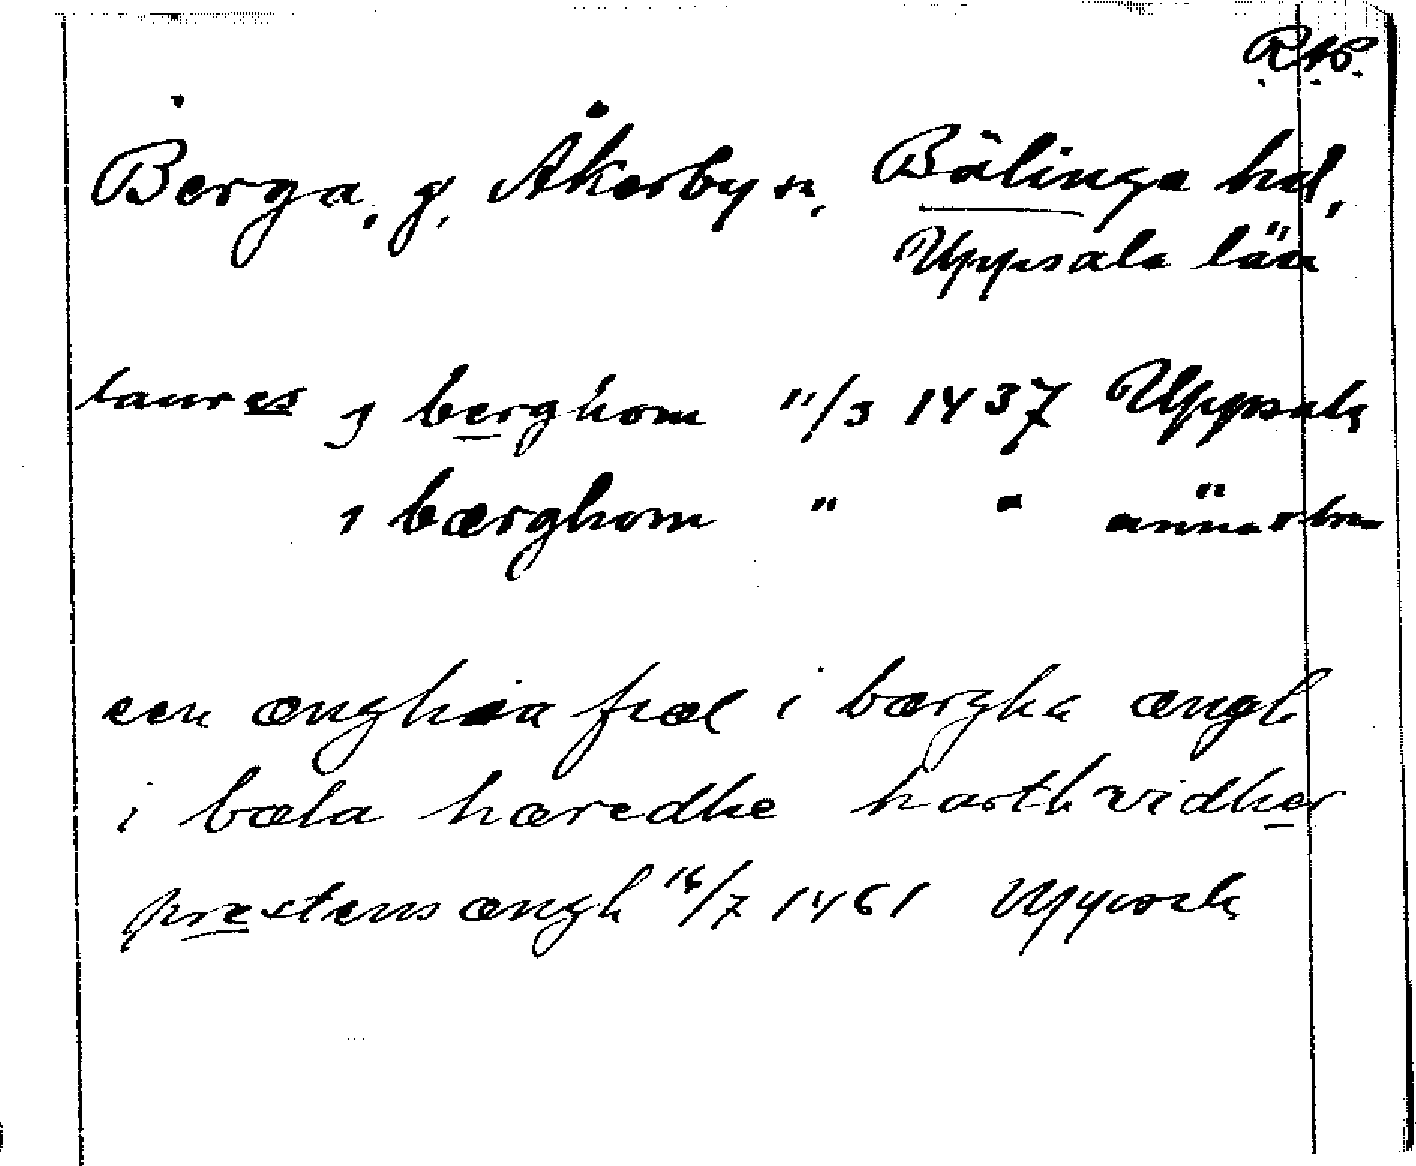 RAP.
Berga, g, Åkerby sn, Bälinge hd,
Uppsala län
laures j berghom 11/3 1437 Uppsala
i bærghom " " ännerbrev
eenænghia fiæl i bærgha ængh
i bæla hæredhe harth vidher
prestens ængh 16/7 1461 Uppsala